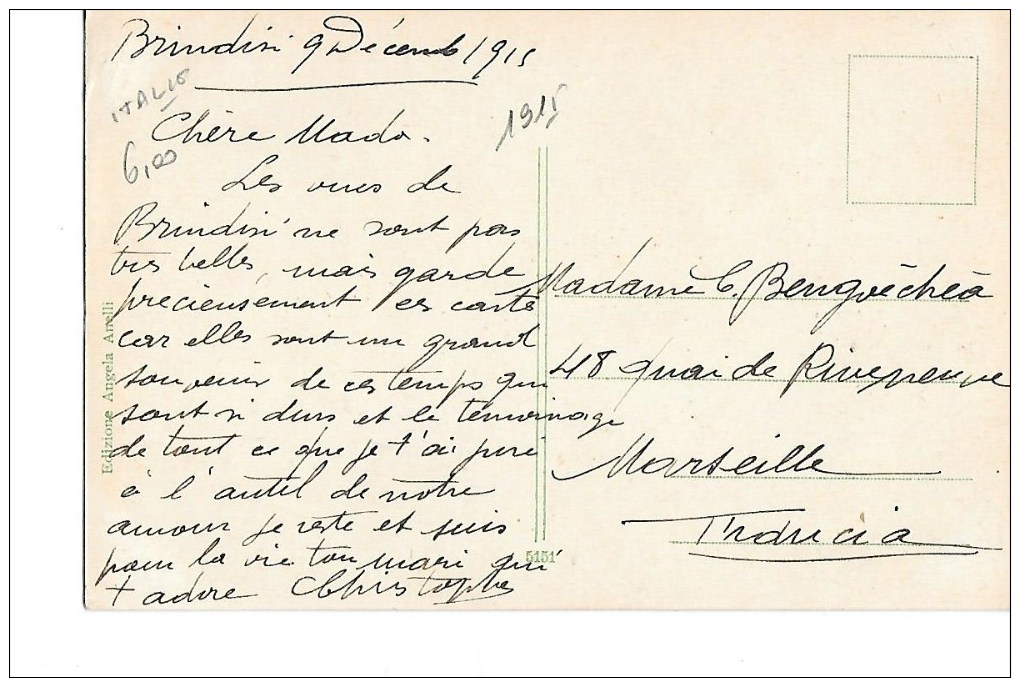 Brindisi 9 Décemb 1915
ITALIE
1915
6,00
Chère Mado.
Les vues de
Brindisi ne sont pas
tres belles, mais garde
précieusement ces carte
car elles sont un grand
souvenir de ces temps qui
sont si durs et le témoinage
de tout ce que je t'ai juré
à l'autel de notre
amour je reste et suis
pour la vie ton mari qui
t adore Christophe
Edizione Angela Anelli
5151
Madame C. Bengoéchéa
48 quai de Riveneuve
Marseille
Francia